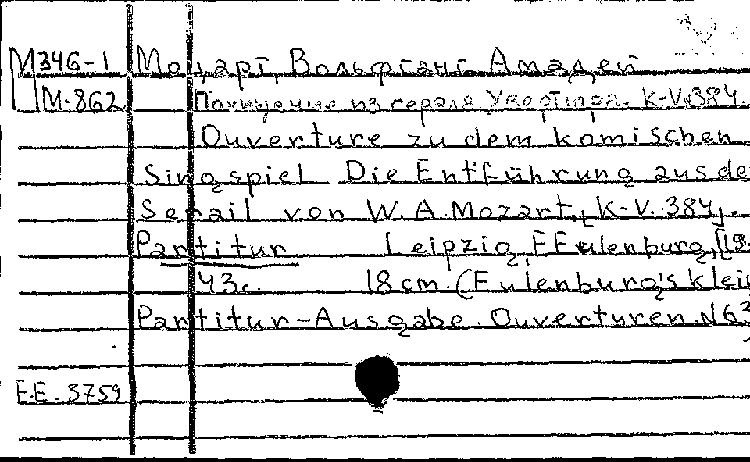 М346-1 Моцарт, Вольфганг Амадей
М-862 Похищение из сераля. Увертюра. К-V.384.
Ouverture zu dem komischen
Singspiel Die Entführung aus de
Serail von W. A. Mozart, K-V. 384.
Partitur Leipzig, E Eulenburg, [19
43с. 18 cm. (Eulenburg's klei
Partitur-Ausgabe. Ouverturen. N 63
E.E. 3759